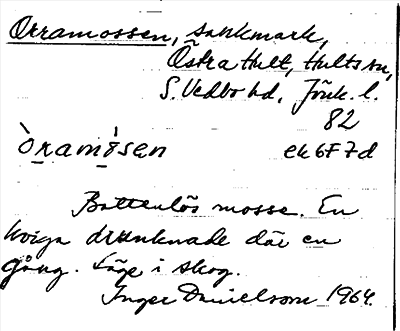 Orramossen, sankmark,
Östra Hult, Hults sn,
S. Vedbo hd, Jönk. l.
82
òramósen ek6F7d
Bottenlös mosse. En
kviga drunknade där en
gång. Läge i skog.
Inger Danielsson 1964.